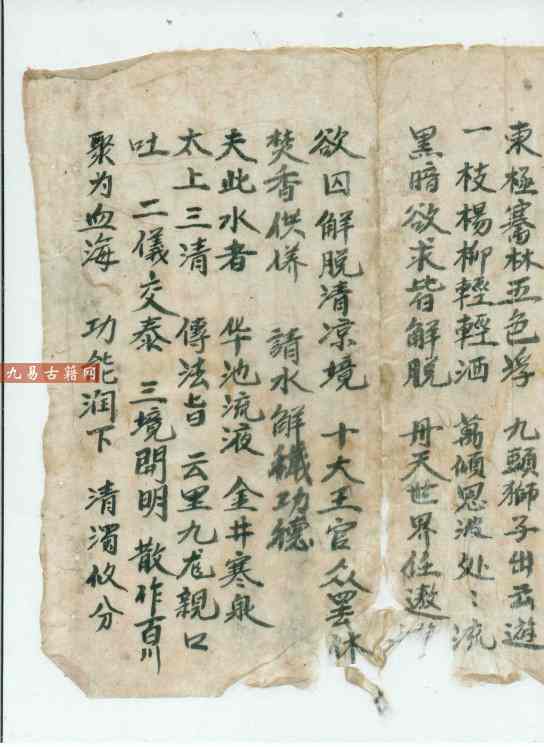 東極騫林五色浮 九頭獅子出雲遊
一枝楊柳輕輕洒 萬傾恩波处〻流
黑暗欲求皆解脫 丹天世界任遨
欲囚解脫清凉境 十大王官众罢休
焚香供养 請水解穢功德
夫此水者 华池流液 金井寒泉
太上三清 傳法旨 云里九龙親口
吐 二儀交泰 三境開明 散作百川
聚为血海 功能润下 清濁攸分
九易古籍网